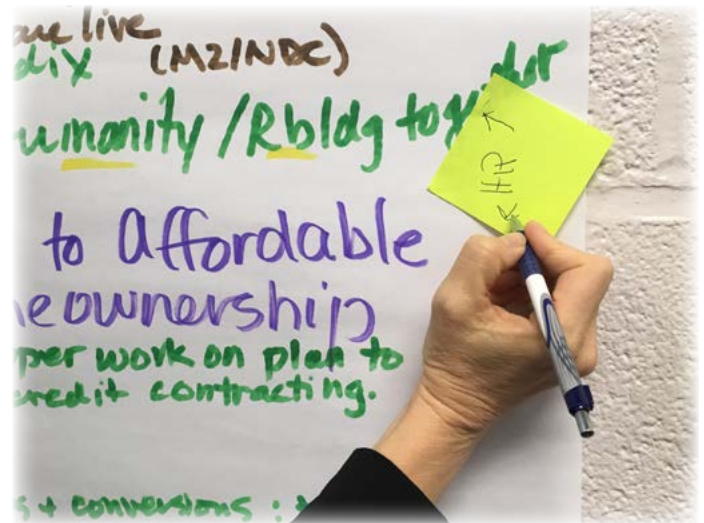 live
(M2/NDC)
umanity / Rbldg together
HR
to affordable
eownership
per work on plan to
credit contracting.
s + conversions :